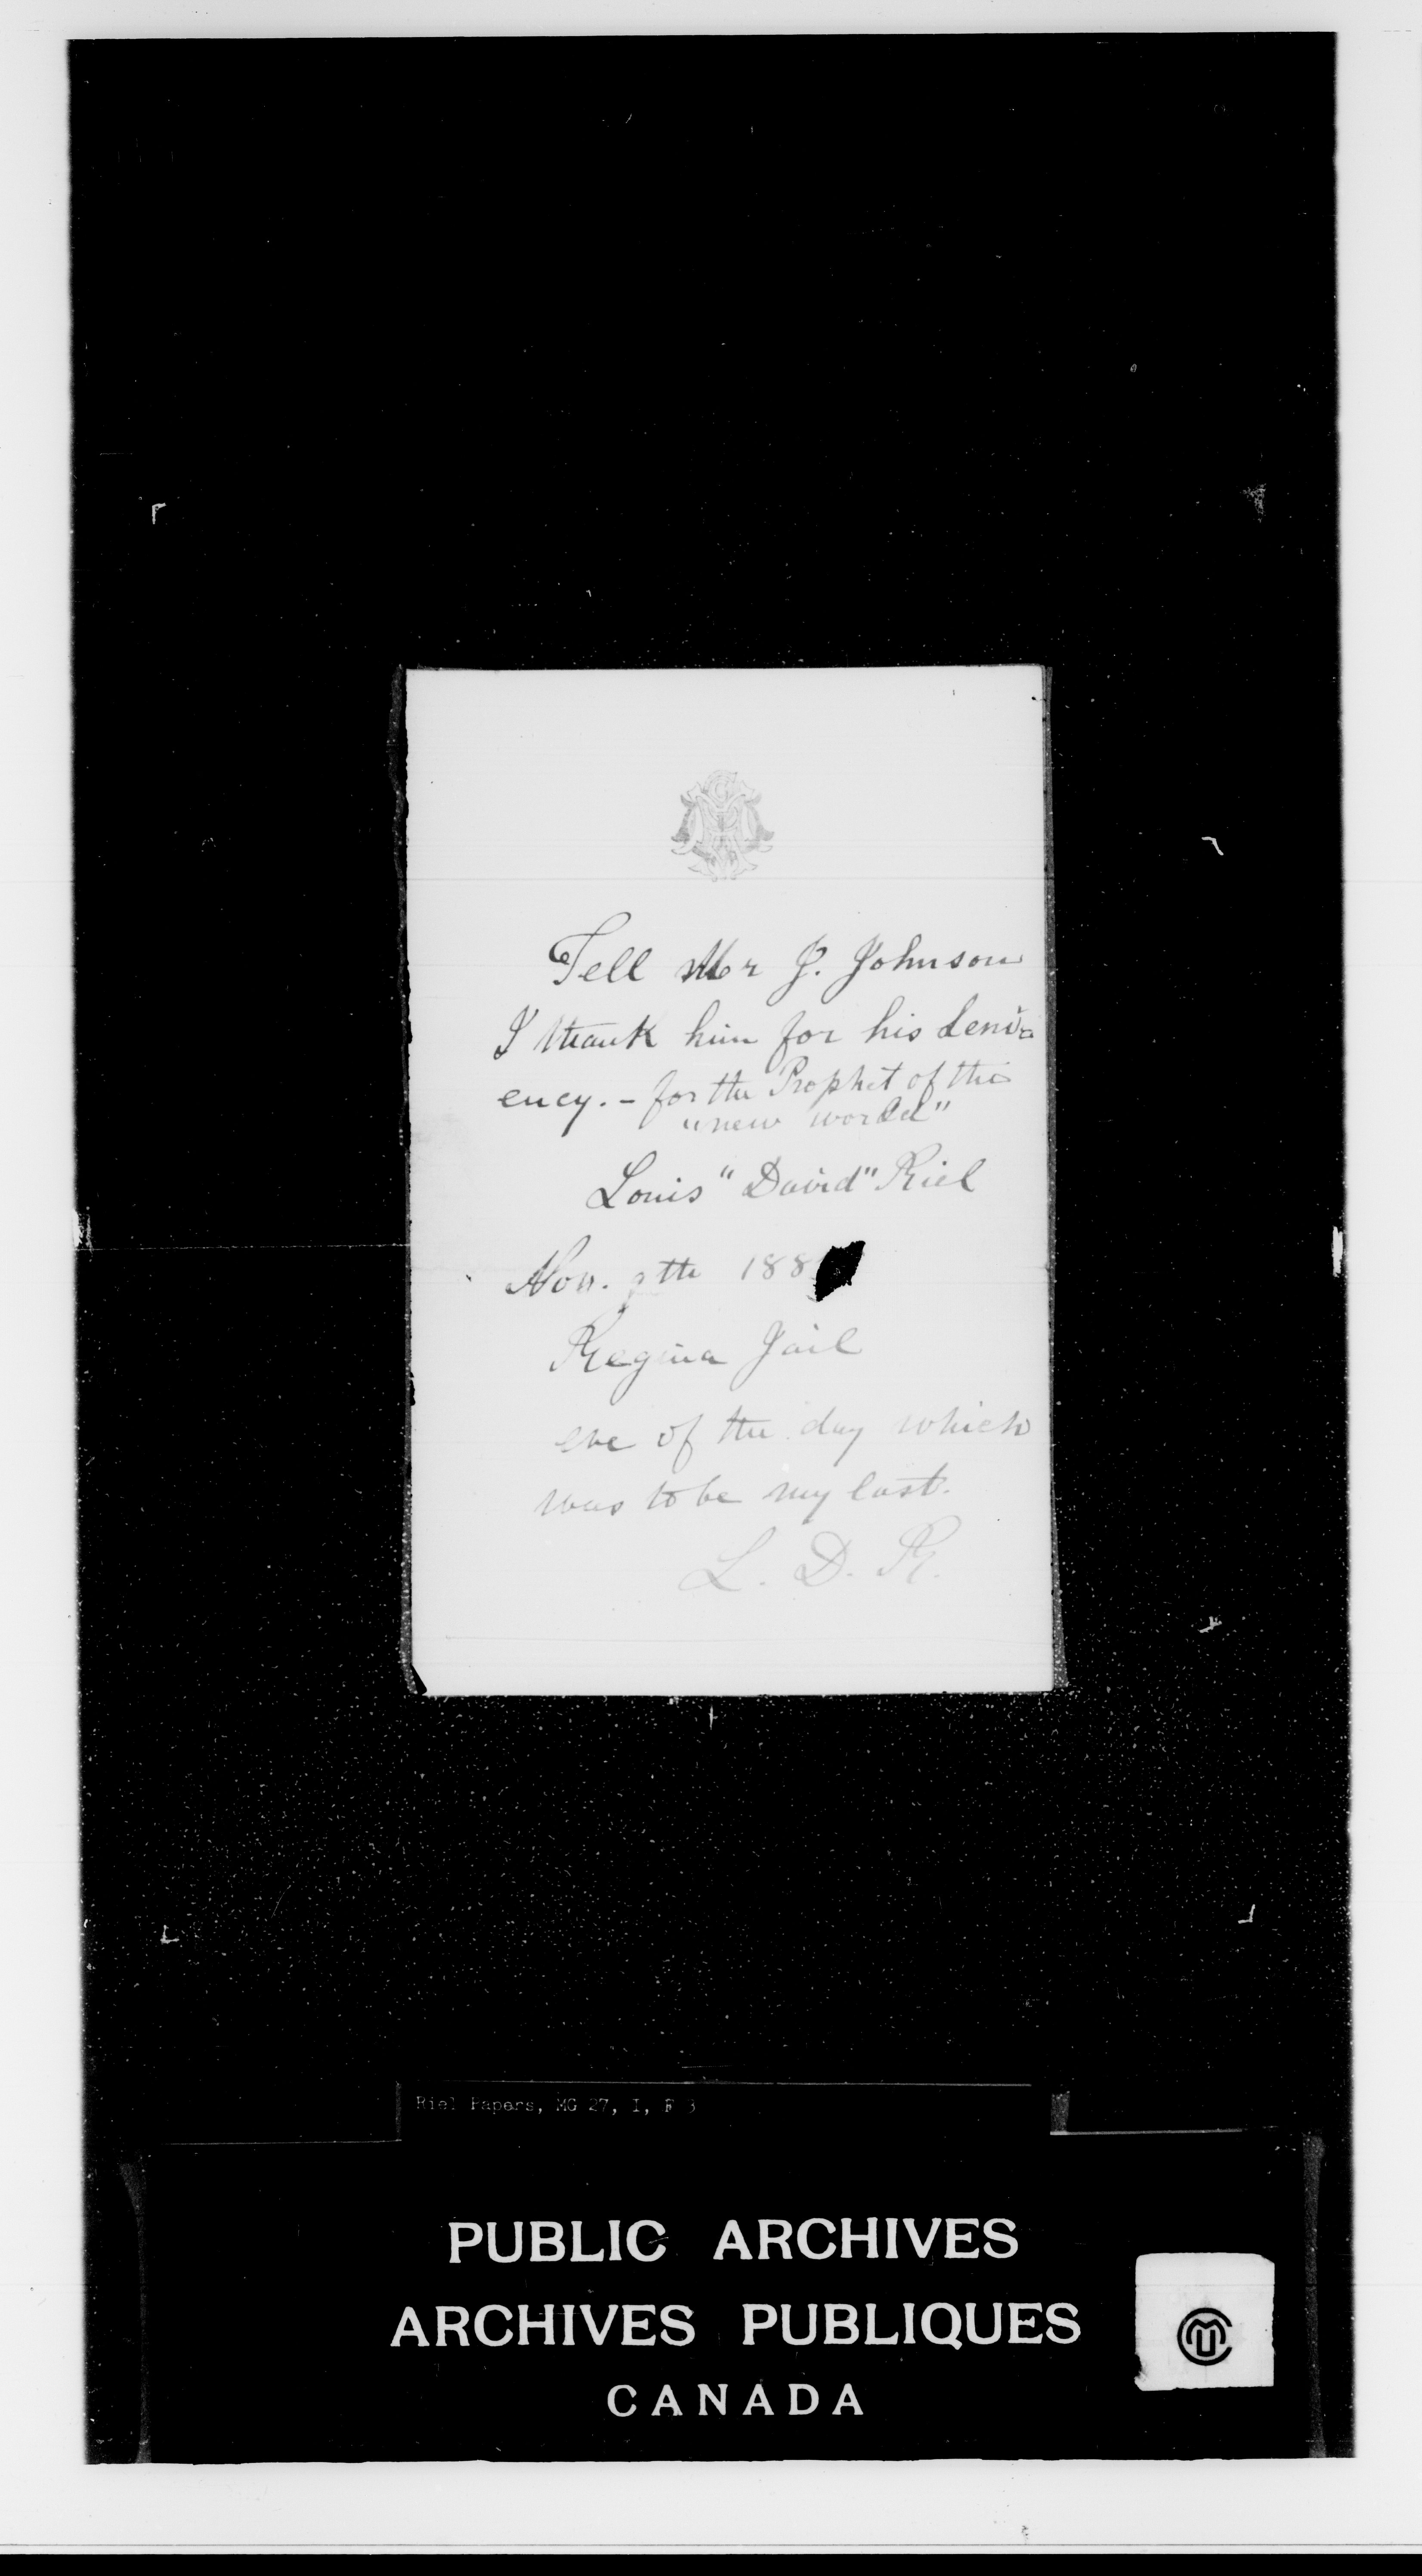 Tell Mr J. Johnson
I thank him for his Leni=
ency. - for the Prophet of the
"new world"
Louis "David" Riel
Nov. 9th 188
Regina Jail
eve of the day which
was to be my last.
L. D. R.
Riel Papers, MG 27, I, F 3
PUBLIC ARCHIVES
ARCHIVES PUBLIQUES
CANADA